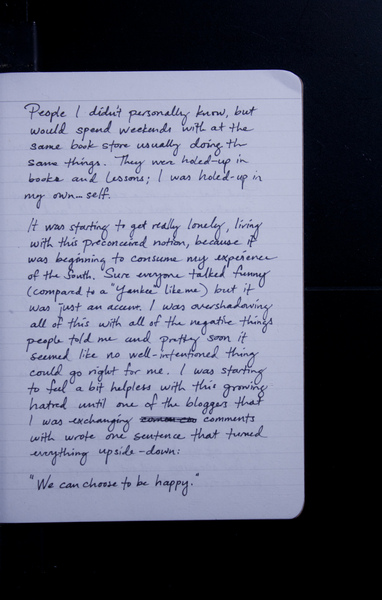 People I didn't personally know, but
would spend weekends with at the
same book store usually doing th
same things. They were holed-up in
books and lessons; I was holed-up in
my own... self.
It was starting to get really lonely, living
with this preconceived notion, because it
was beginning to consume my experience
of the South. Sure everyone talked funny
(compared to a "Yankee" like me) but it
was just an accent. I was overshadowing
all of this with all of the negative things
people told me and pretty soon it
seemed like no well-intentioned thing
could go right for me. I was starting
to feel a bit helpless with this growing
hatred until one of the bloggers that
I was exchanging comments
with wrote one sentence that turned
everything upside-down:
"We can choose to be happy."